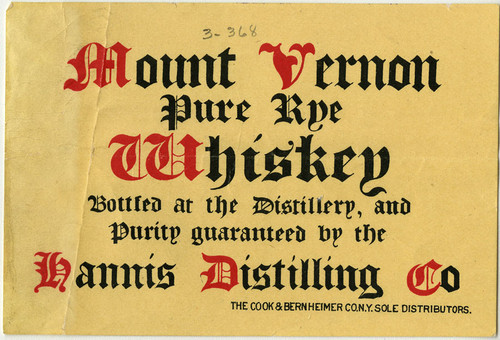 3-368
Mount Vernon
Pure Rye
Whiskey
Bottled at the Distillery, and
Purity guaranteed by the
Hannis Distilling Co
THE COOK & BERNHEIMER CO.N.Y. SOLE DISTRIBUTORS.